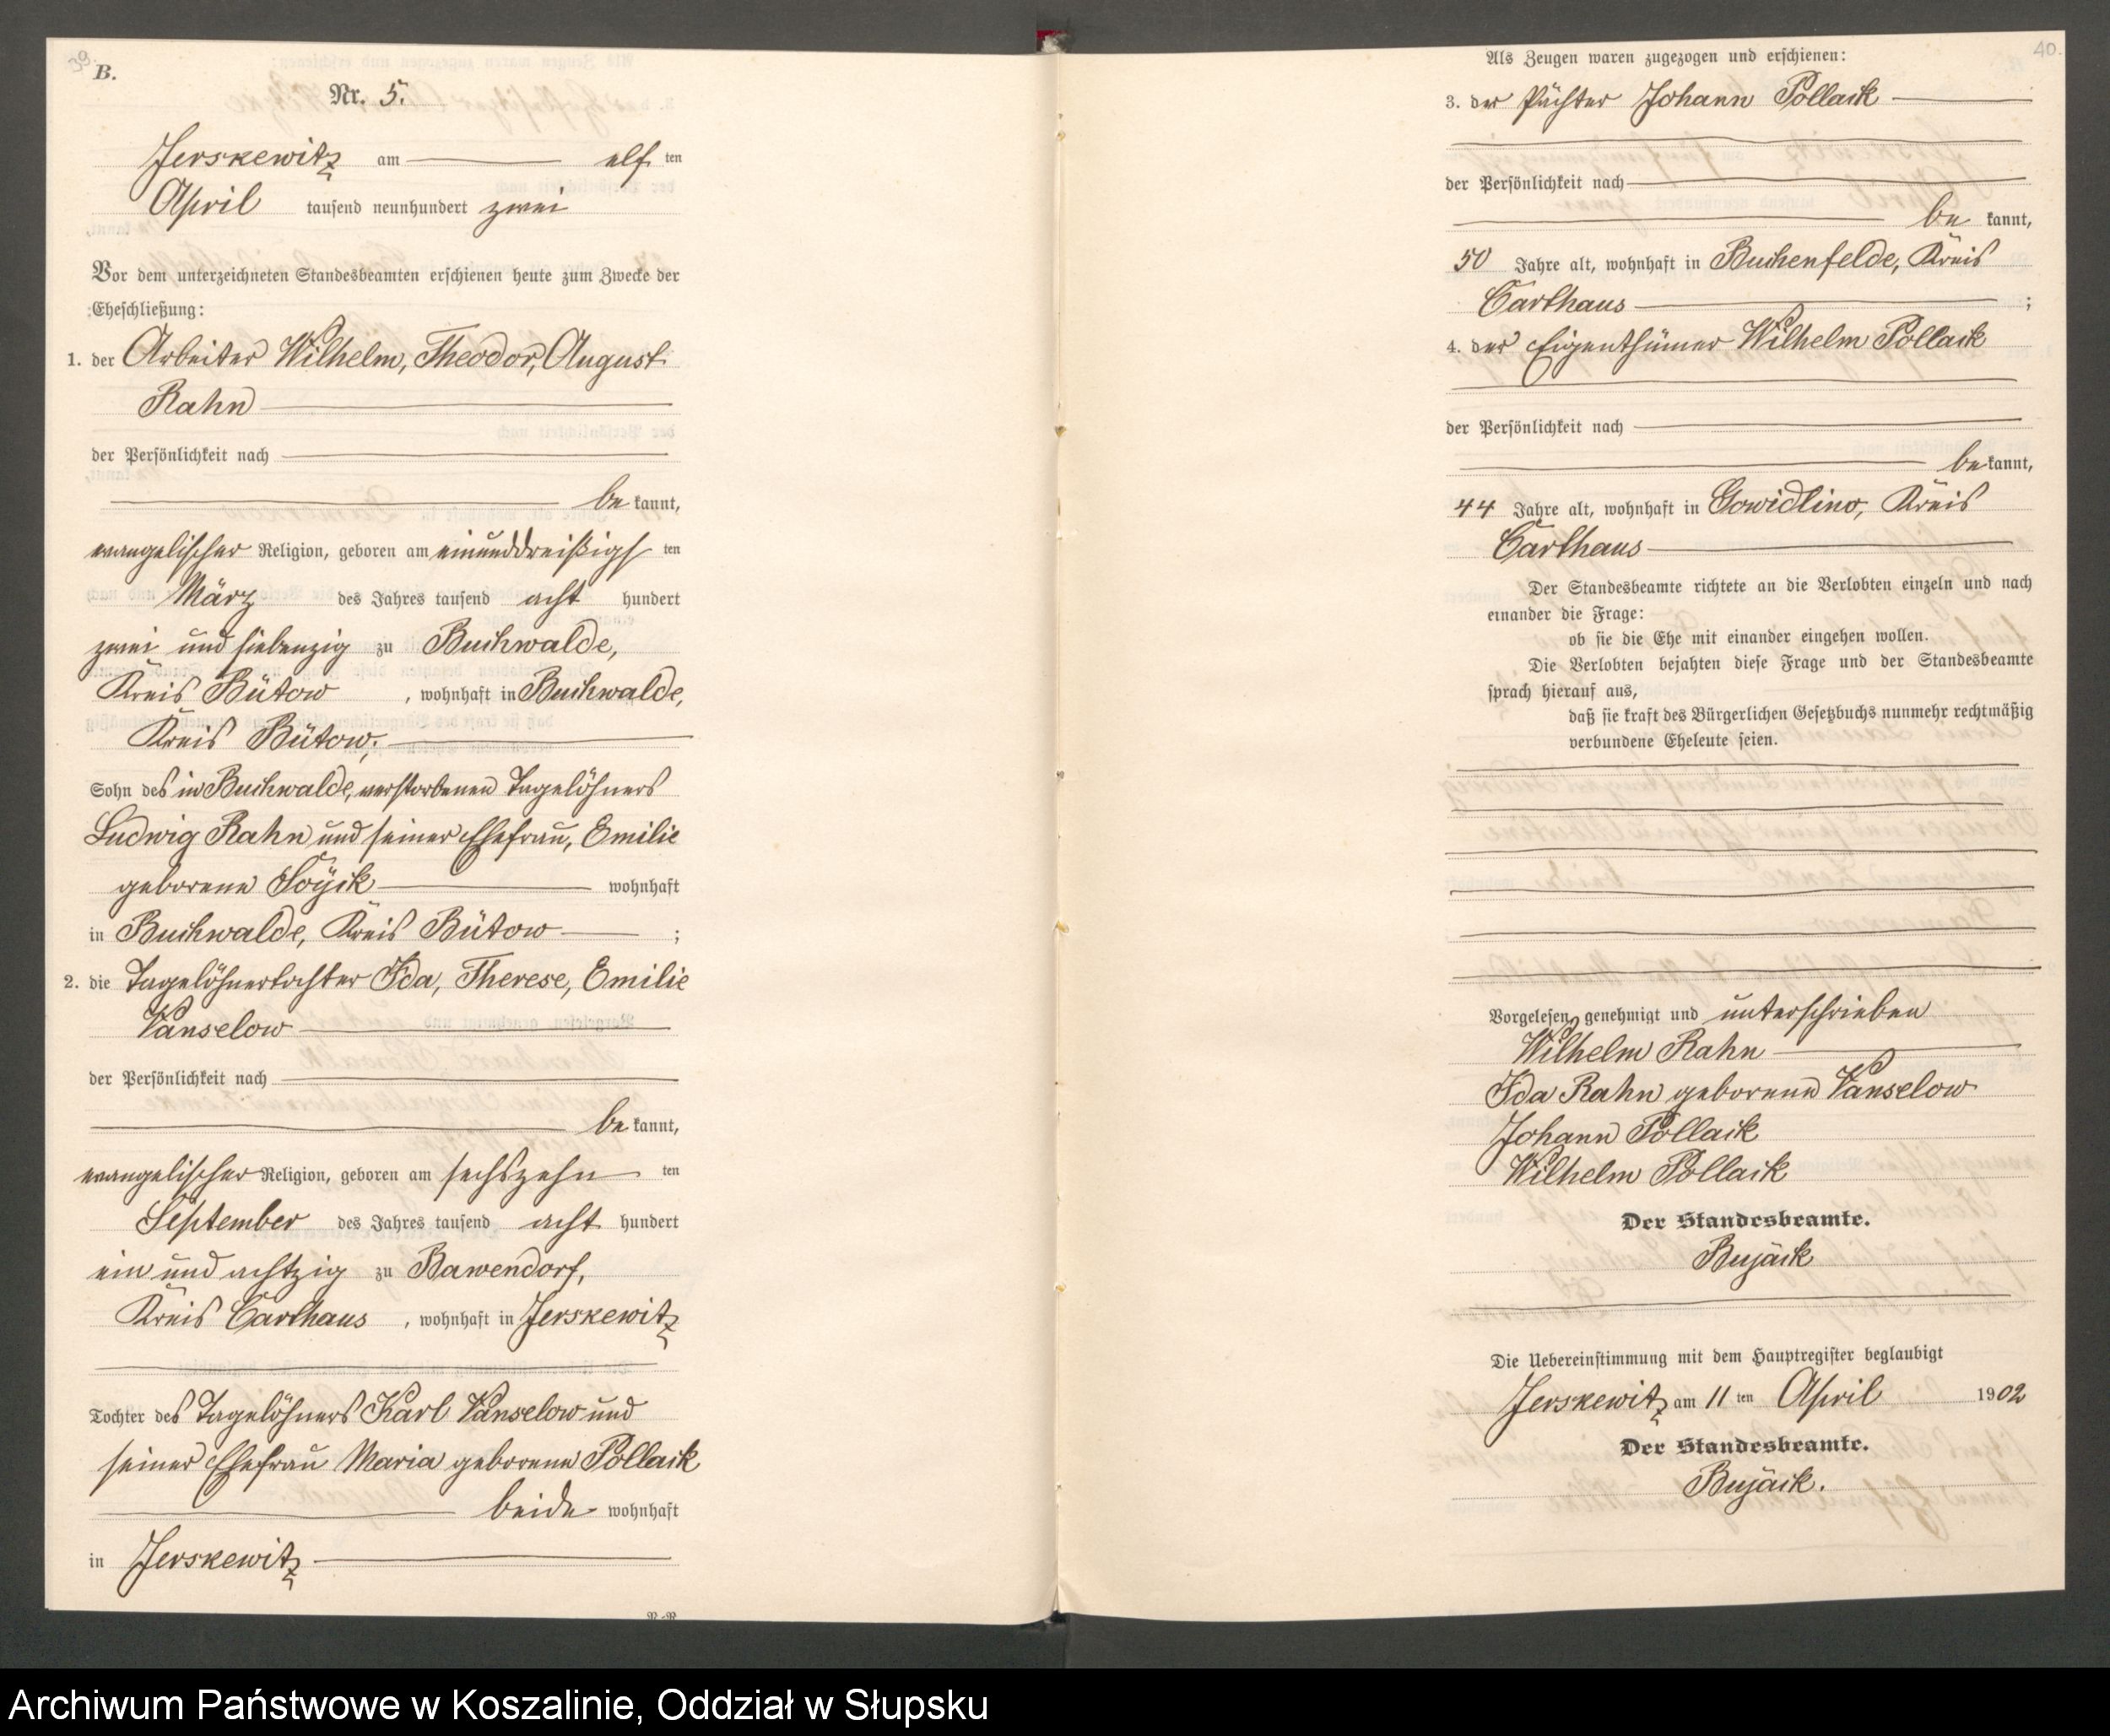 39.
B.
Nr. 5.
Jerskewitz am elf ten
April tausend neunhundert zwei
Vor dem unterzeichneten Standesbeamten erschienen heute zum Zwecke der
Eheschließung:
1. der Arbeiter Wilhelm, Theodor, August
Rahn
der Persönlichkeit nach
be kannt,
evangelischer Religion, geboren am einunddreißigs ten
März des Jahres tausend acht hundert
zwei und siebenzig zu Buchwalde,
Kreis Bütow, wohnhaft in Buchwalde,
Kreis Bütow,
Sohn des in Buchwalde, verstorbenen Tagelöhners
Ludwig Rahn und seiner Ehefrau, Emilie
geborene wohnhaft
in Buchwalde, Kreis Bütow ;
2. die Tagelöhnertochter Ida, Therese, Emilie
Vanselow
der Persönlichkeit nach
be kannt,
evangelischer Religion, geboren am sechszehn ten
September des Jahres tausend acht hundert
ein und achtzig zu Bawendorf,
Kreis Carthaus, wohnhaft in Jerskewitz
Tochter des Tagelöhners Karl Vanselow und
seiner Ehefrau Maria geborene Pollack
beide wohnhaft
in Jerskewitz
40.
Als Zeugen waren zugezogen und erschienen:
3. der Pächter Johann Pollack
der Persönlichkeit nach
be kannt,
50 Jahre alt, wohnhaft in Buchenfelde, Kreis
Carthaus ;
4. der Eigenthümer Wilhelm Pollack
der Persönlichkeit nach
be kannt,
44 Jahre alt, wohnhaft in Gowidlino, Kreis
Carthaus
Der Standesbeamte richtete an die Verlobten einzeln und nach
einander die Frage:
ob sie die Ehe mit einander eingehen wollen.
Die Verlobten bejahten diese Frage und der Standesbeamte
sprach hierauf aus,
daß sie kraft des Bürgerlichen Gesetzbuchs nunmehr rechtmäßig
verbundene Eheleute seien.
Vorgelesen, genehmigt und unterschrieben
Wilhelm Rahn
Ida Rahn geborene Vanselow
Johann Pollack
Wilhelm Pollack
Der Standesbeamte.
Bujack
Die Uebereinstimmung mit dem Hauptregister beglaubigt
Jerskewitz am 11 ten April 1902
Der Standesbeamte.
Bujack.
Archiwum Państwowe w Koszalinie, Oddział w Słupsku